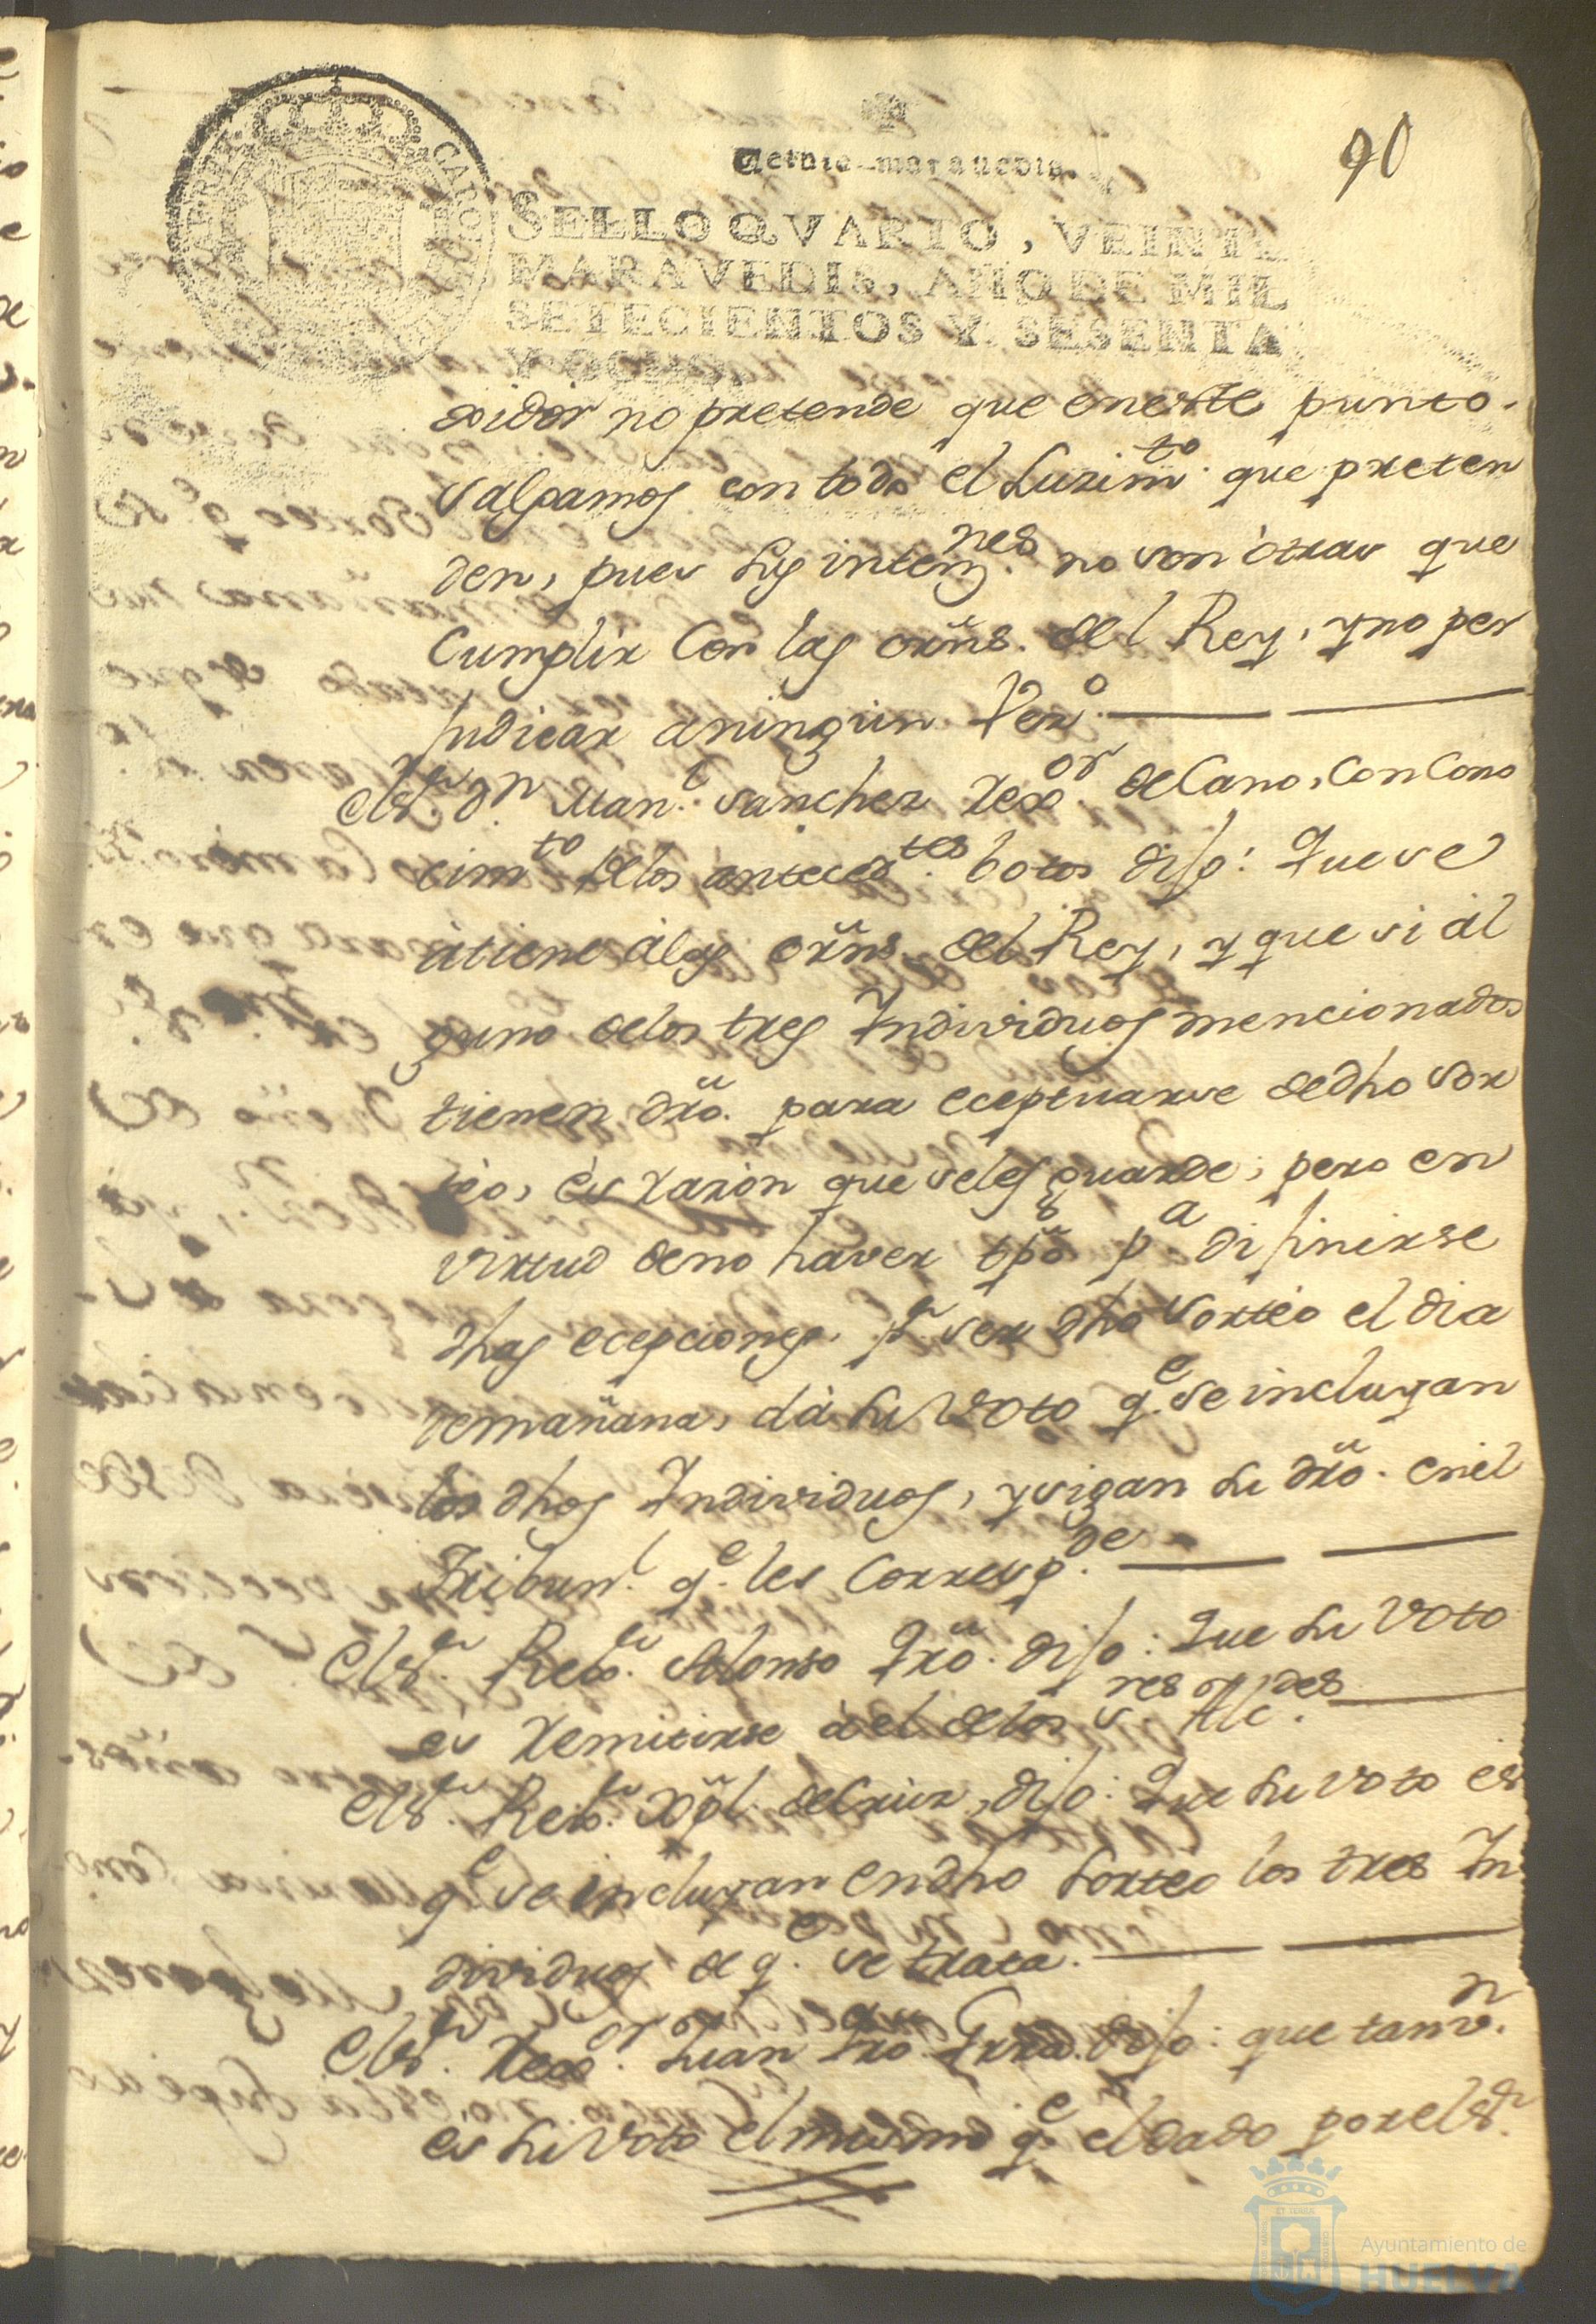 90
Veinte maravedis.
SELLO QVARTO, VEINTE
MARAVEDIS, AÑO DE MIL
SETECIENTOS Y SESENTA
Y OCHO.
xidor no pretende que eneste punto
salgamos con todo el Luzimto. que preten
den, pues sus intenznes. no son otras que
Cumplir Con las orñs. del Rey, y no per
Judicar a ningun Vezo.
El Sr. Dn. Manl. Sanchez Rexor. de Cano, Con Cono
cimto. delos anteceds.tes botos dijo: Que se
atiene álas orñs. del Rey, y que si al
guno delos tres Individuos mencionados
tienen dr̃o. para eceptuarse dedho Sor
téo, és razon que seles guarde; pero en
virtud deno haver tpõ pa difinirse
dhas ecepciones. pr. ser dho Sortéo el dia
demañana, dá su Voto qe. se incluyan
los dhos Individuos, y sigan su dr̃o. enel
Tribunl. qe. les Correspde.
El Sr. Rexr. Alonso Qr̃o. dijo: Que su Voto
és Remitirse ál delos Sres. Alcdes.
El Sr. Rexr. Xpõl. de Cruz, dijo: Que su Voto es
qe. se incluyan endho Sorteo los tres In
dividuos de qe. se trata.
El Sr. Rexor. Juan dijo: que tamvn.
és su Voto el mismo qe. el dado por el Sr.
Ayuntamiento de
HUELVA